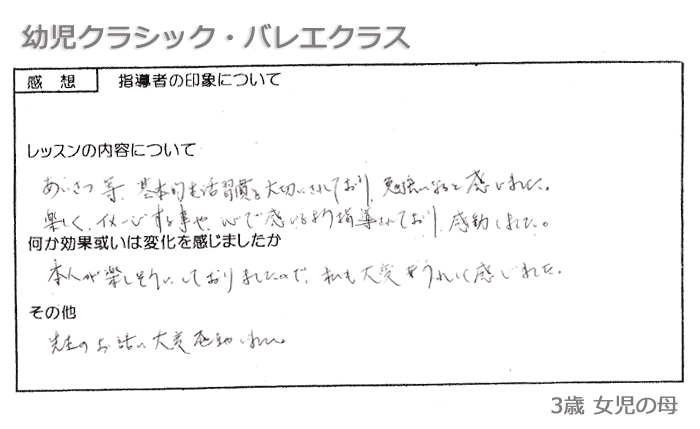 幼児クラシック・バレエクラス
感 想 指導者の印象について
レッスンの内容について
あいさつ等、基本的な活習慣を大切にされており、勉強になると感じました。
楽しく、イメージする事や、心で感じるよう指導されており、感動しました。
何か効果或いは変化を感じましたか
本人が楽しそうにしておりましたので、私も大変うれしく感じました。
その他
先生のお話に大変感動しました。
3歳 女児の母